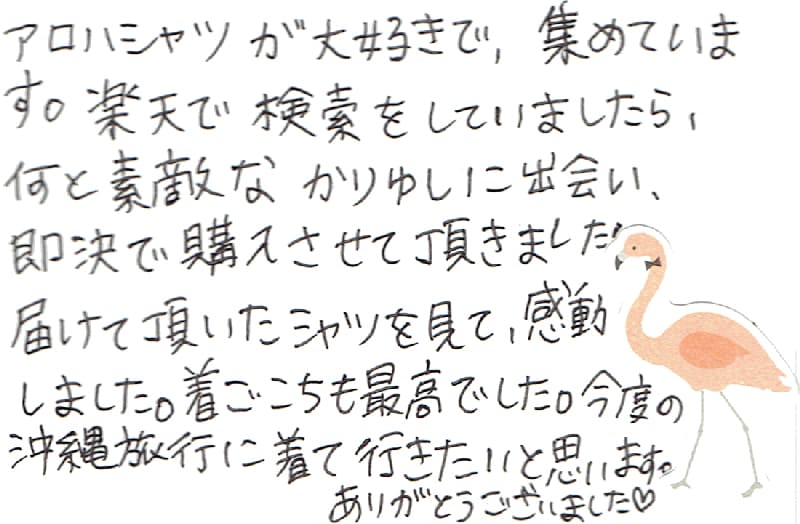 アロハシャツが大好きで、集めていま
す。楽天で検索をしていましたら、
何と素敵なかりゆしに出会い、
即決で購入させて頂きました
届けて頂いたシャツを見て、感動
しました。着ごこちも最高でした。今度の
沖縄旅行に着て行きたいと思います。
ありがとうございました♡